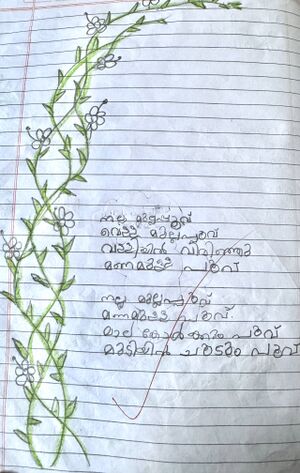 നല്ല മുല്ലപ്പൂവ്
വെള്ള മുല്ലപ്പൂവ്
വള്ളിയിൽ വിരിഞ്ഞു
മണമുള്ള പൂവ്
നല്ല മുല്ലപ്പൂവ്
മണമുള്ള പൂവ്
മാല കോർക്കും പൂവ്
മുടിയിൽ ചൂടും പൂവ്